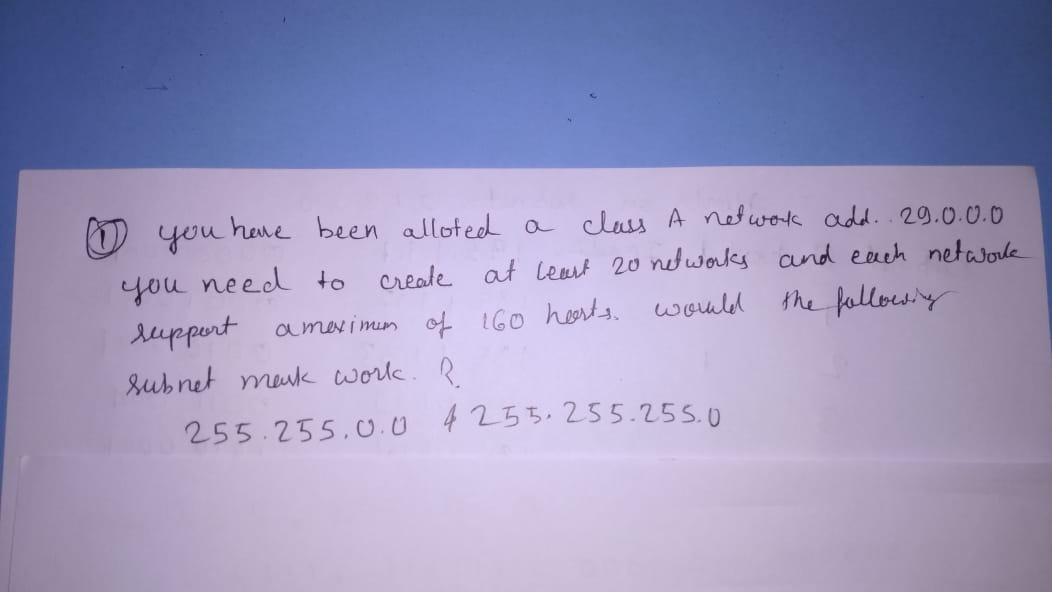 ① you have been alloted a class A network add.. 29.0.0.0
you need to create at least 20 networks and each network
support a maximum of 160 hosts. would the following
subnet mask work. ?
255.255.0.0 & 255.255.255.0